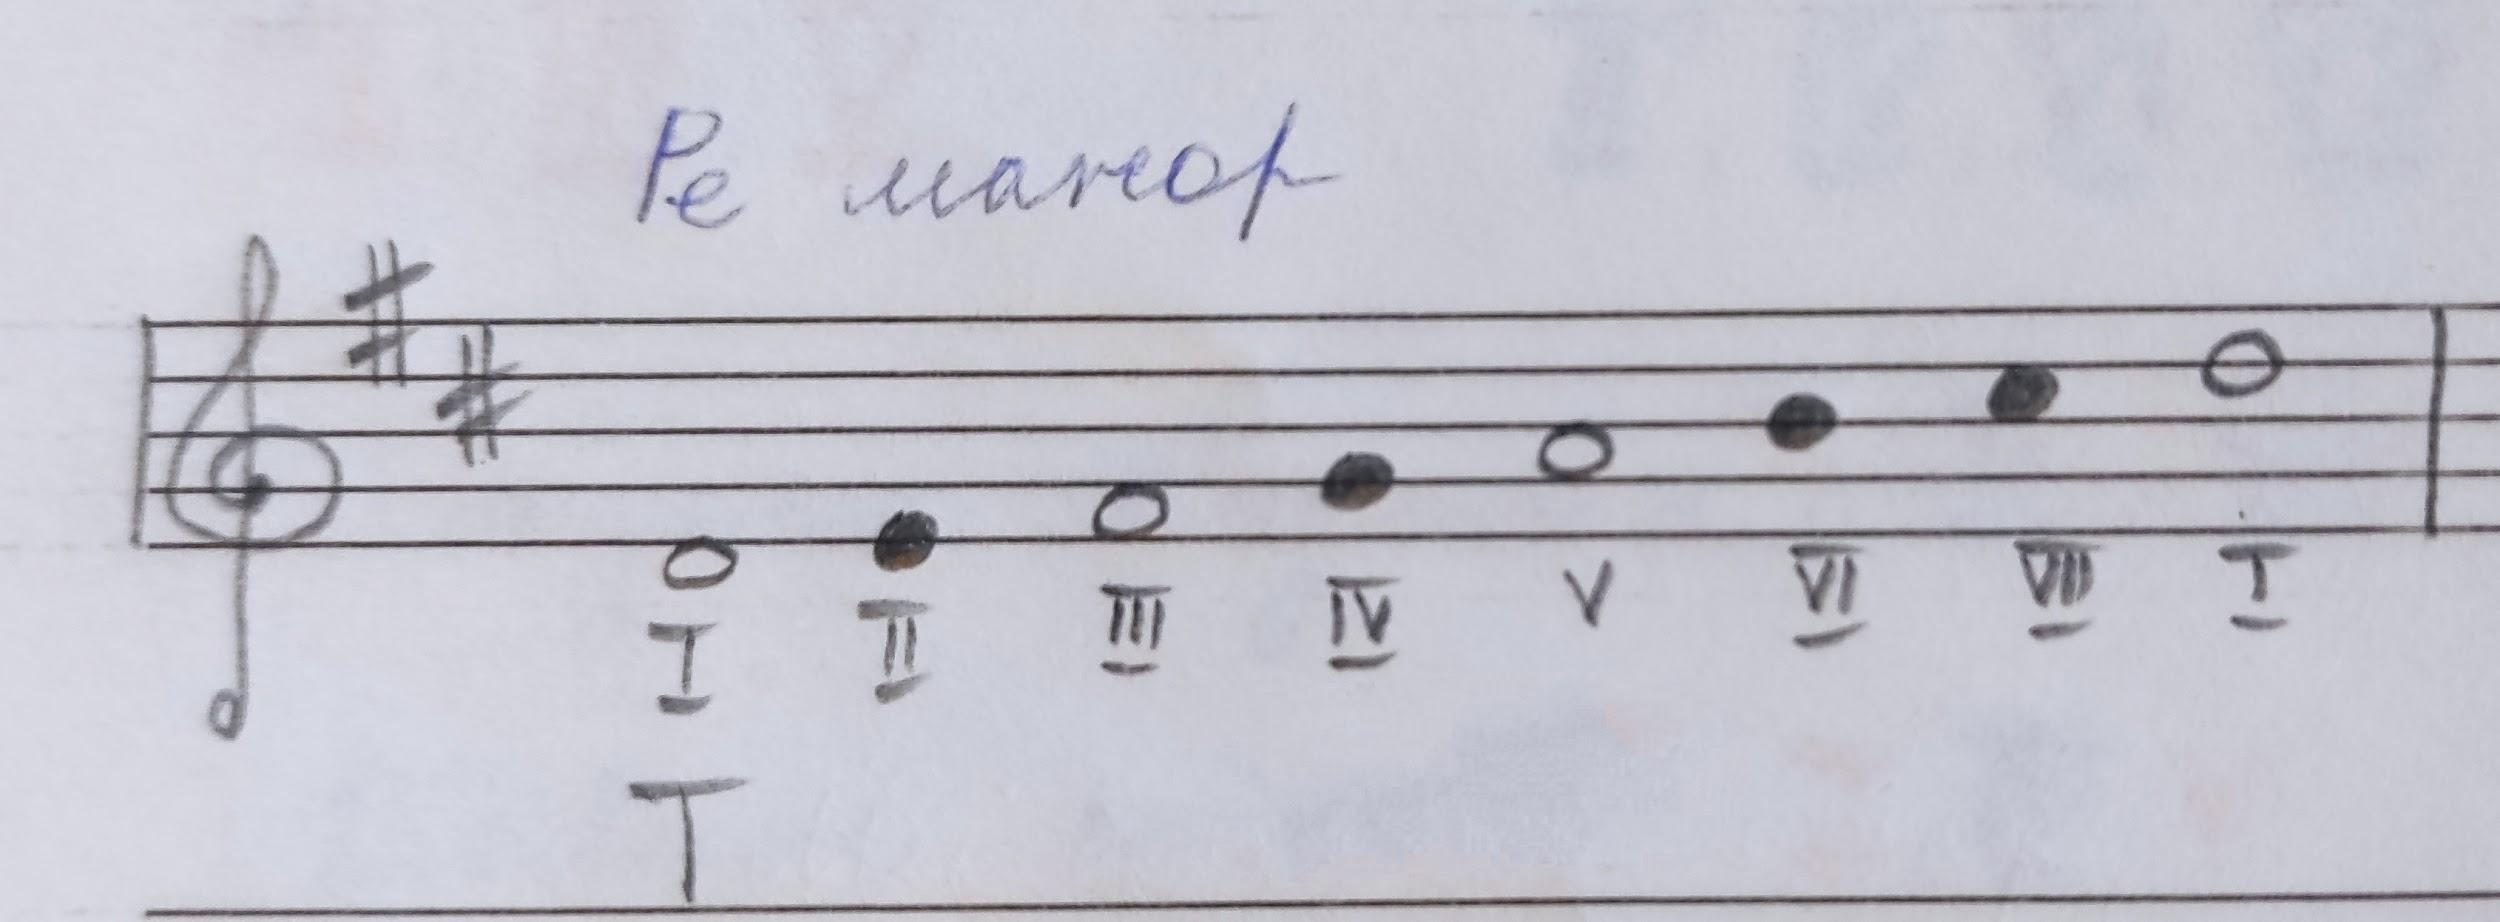 Ре мажор
I II III IV V VI VII I
T